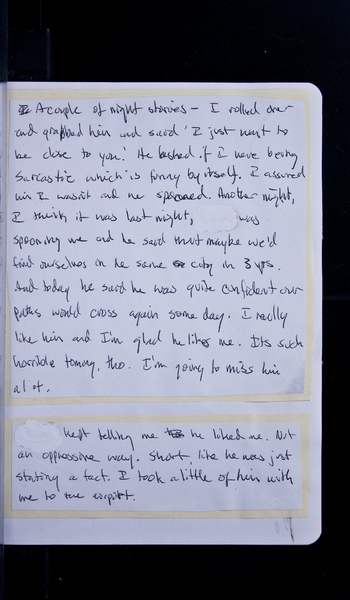 A couple of night stories - I rolled over
and grabbed him and said 'I just want to
be close to you.' He asked if I were being
sarcastic which is funny by itself. I assured
him I wasn't and we spooned. Another night,
I think it was last night, was
spooning me and he said that maybe we'd
find ourselves in the same city in 3 yrs.
And today he said he was quite confident our
paths would cross again some day. I really
like him and I'm glad he likes me. Its such
horrible timing, tho. I'm going to miss him
a lot.
kept telling me he liked me. Not
an oppressive way. Short, like he was just
stating a fact. I took a little of him with
me to the airport.